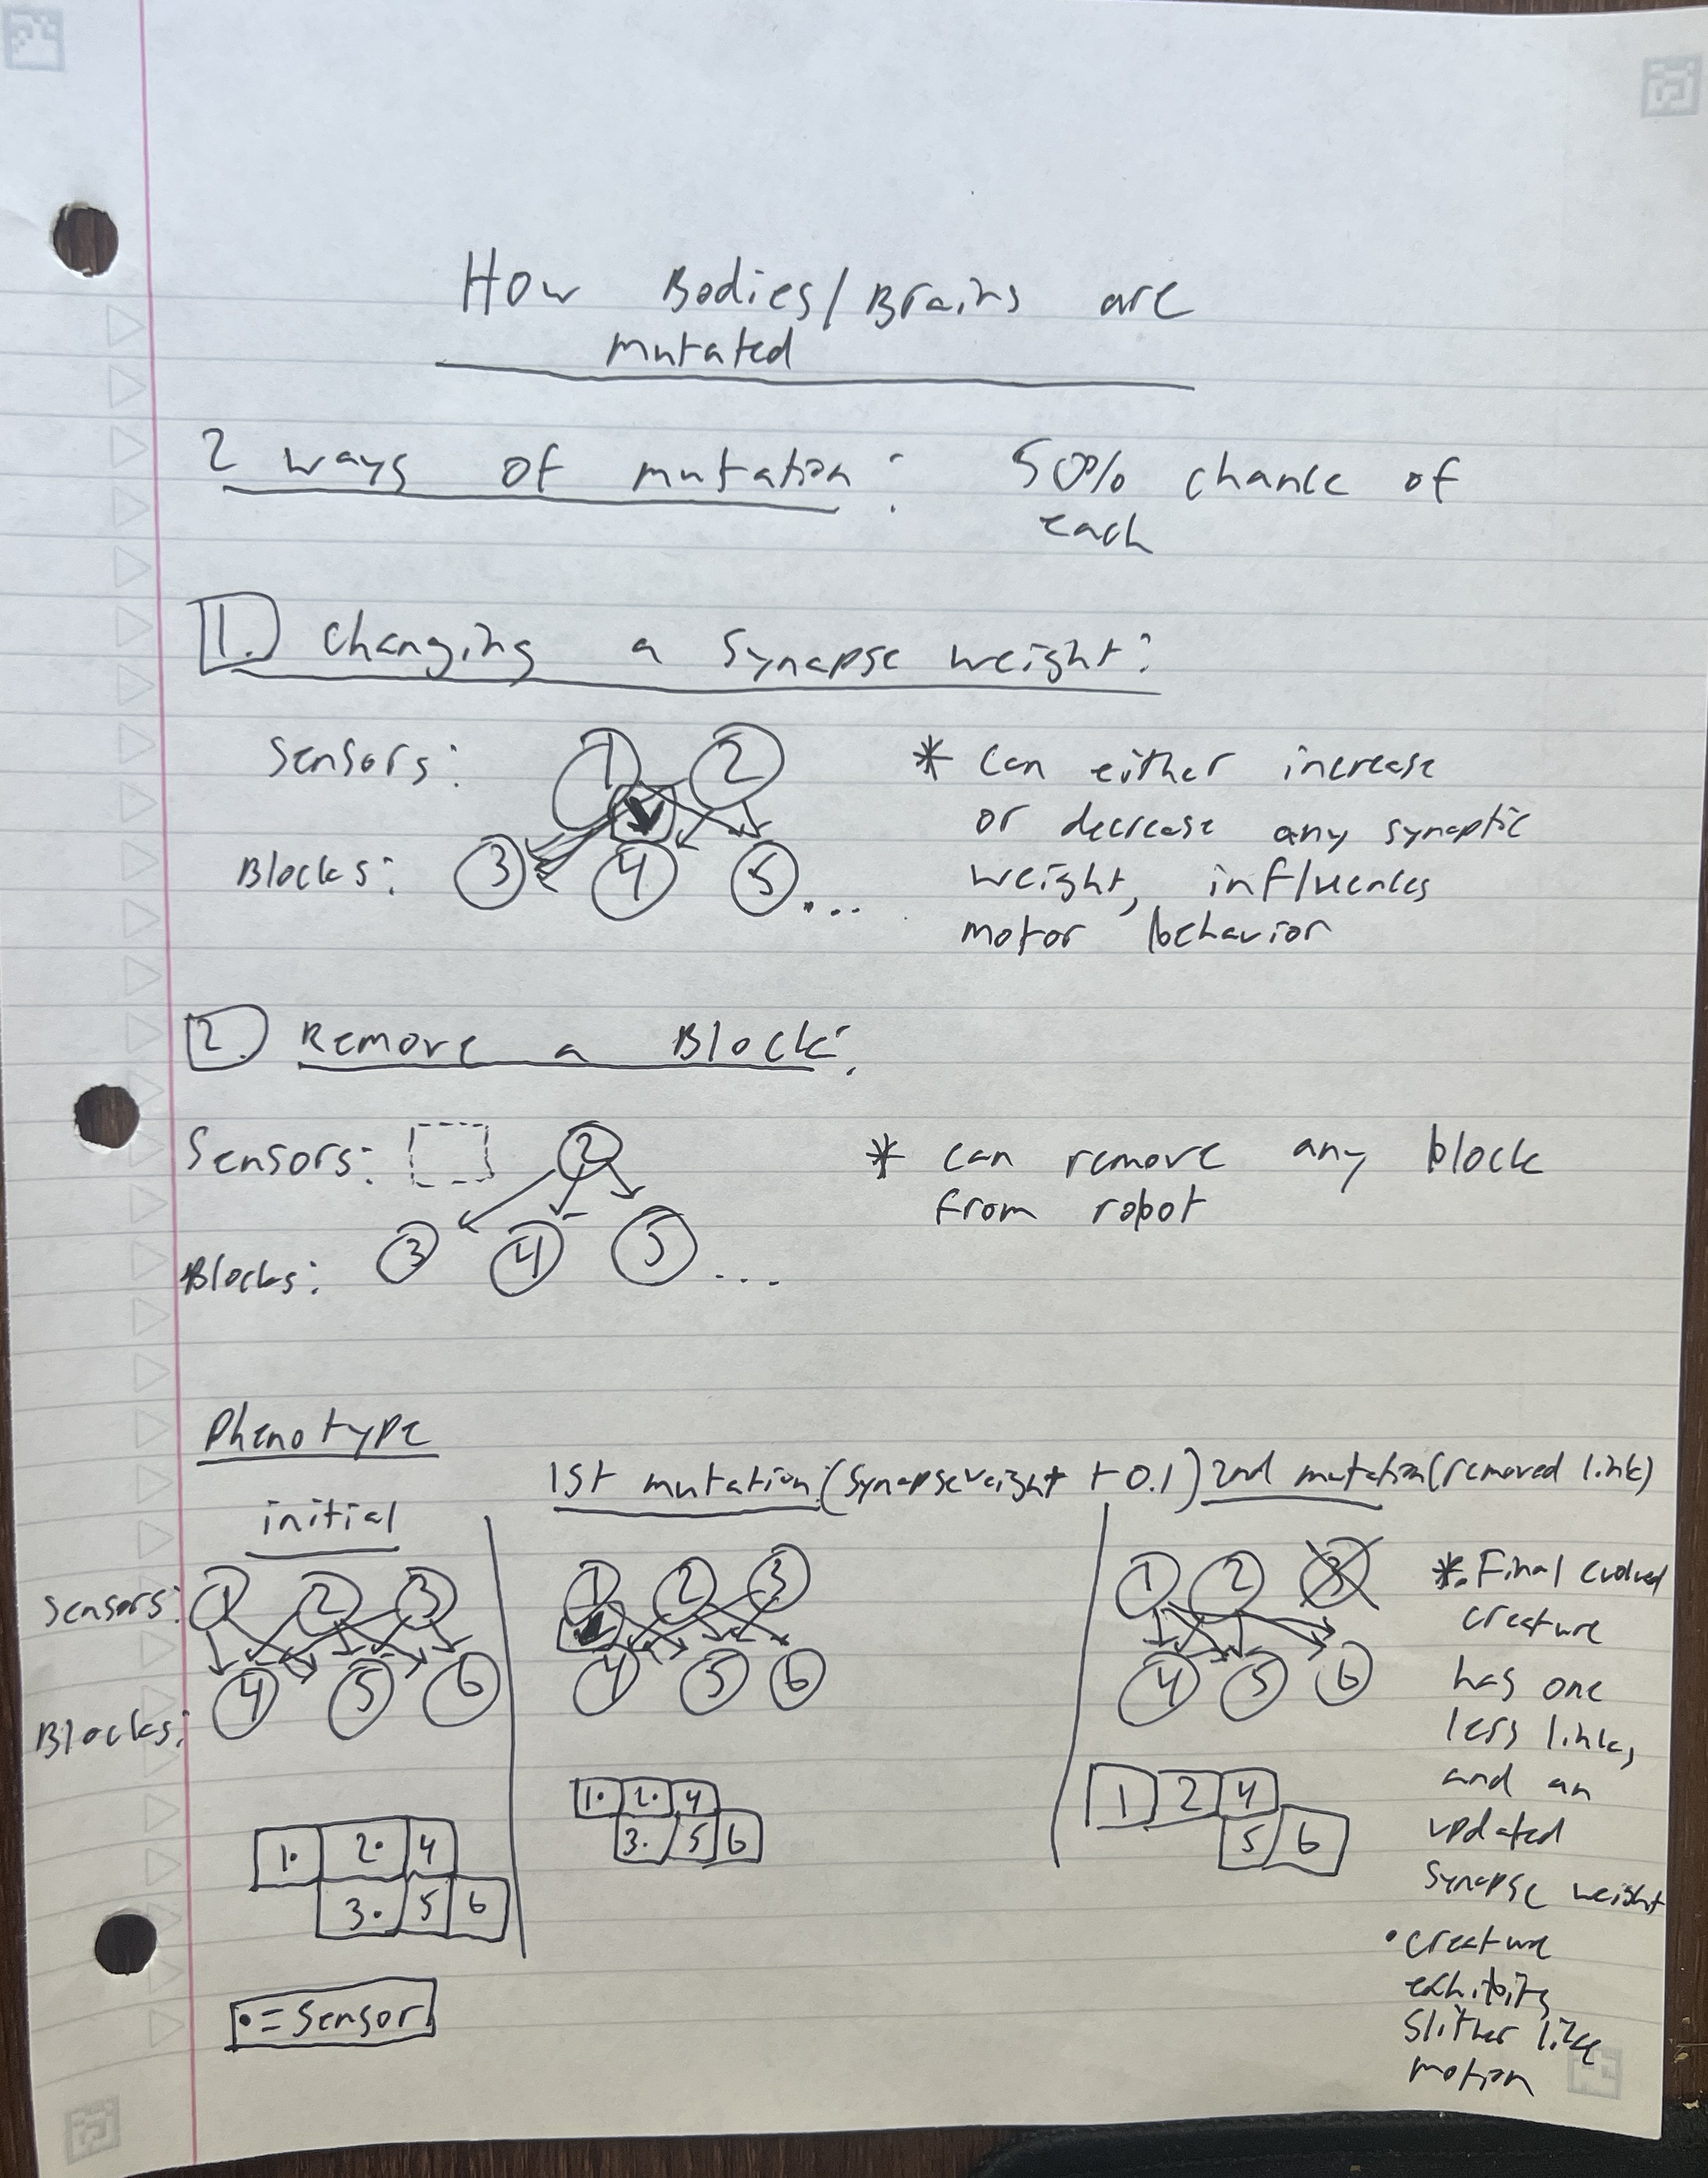 How Bodies/Brains are
mutated
2 ways of mutation: 50% chance of
each
1. Changing a Synapse weight:
Sensors: 1 2
Blocks: 3 4 5 ...
* Can either increase
or decrease any synaptic
weight, influences
motor behavior
2. Remove a Block:
Sensors: 2
Blocks: 3 4 5 ...
* can remove any block
from robot
Phenotype
initial
Sensors: 1 2 3
Blocks: 4 5 6
1. 2. 4
3. 5 6
• = Sensor
1st mutation (Synapse weight + 0.1)
1 2 3
4 5 6
1. 2. 4
3. 5 6
2nd mutation (removed link)
1 2 3
4 5 6
1 2 4
5 6
*. Final evolved
creature
has one
less link,
and an
updated
synapse weight
• creature
exhibits
slither like
motion